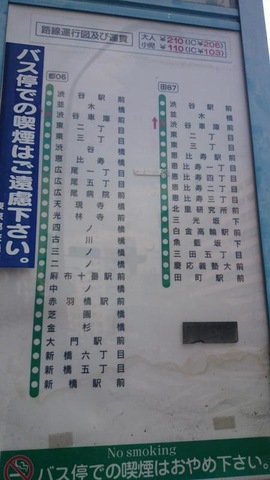 路線運行図及び運賃
大人 ¥210(IC¥206)
小児 ¥110(IC¥103)
バス停での喫煙はご遠慮下さい。
都06
渋谷駅前
並木橋
渋谷車庫前
東二丁目
東三丁目
渋谷橋
恵比寿二丁目
広尾一丁目
広尾五丁目
広尾病院前
天現寺橋
光林寺前
四ノ橋
古川橋
三ノ橋
二ノ橋
一ノ橋
麻布十番駅前
中ノ橋
赤羽橋駅前
芝園橋
金杉橋
大門駅前
新橋六丁目
新橋五丁目
新橋駅前
田87
渋谷駅前
並木橋
渋谷車庫前
東二丁目
東三丁目
恵比寿駅前
恵比寿一丁目
恵比寿四丁目
恵比寿二丁目
恵比寿三丁目
北里研究所前
三光坂下
白金高輪駅前
魚籃坂下
三田五丁目
慶応義塾大前
田町駅前
No smoking
バス停での喫煙はおやめ下さい。